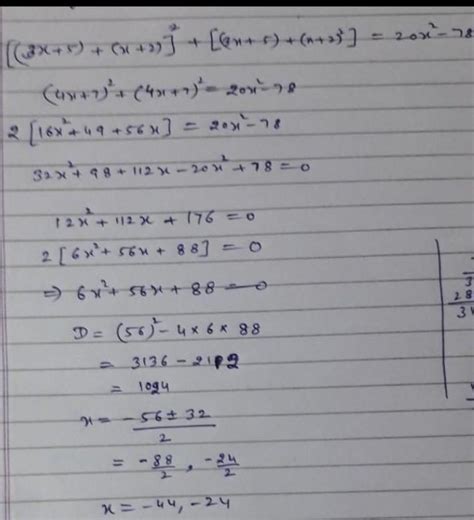 [(3x+5) + (x+2)]² + [(3x+5) + (x+2)²] = 20x²-78
(4x+7)² + (4x+7)² = 20x²-78
2[16x²+49+56x] = 20x²-78
32x²+98+112x-20x²+78=0
12x²+112x+176=0
2[6x²+56x+88]=0
⇒ 6x²+56x+88=0
D = (56)²-4×6×88
= 3136-2112
= 1024
x = -56±32/2
= -88/2, -24/2
x = -44, -24
3
28
31